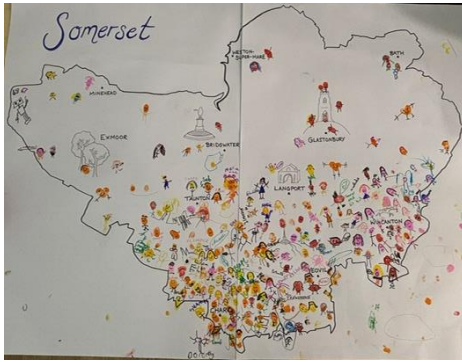 Somerset
WESTON-
SUPER-MARE
BATH
MINEHEAD
EXMOOR
BRIDGWATER
GLASTONBURY
TAUNTON
LANGPORT
WINCANTON
YEOVIL
CHARD